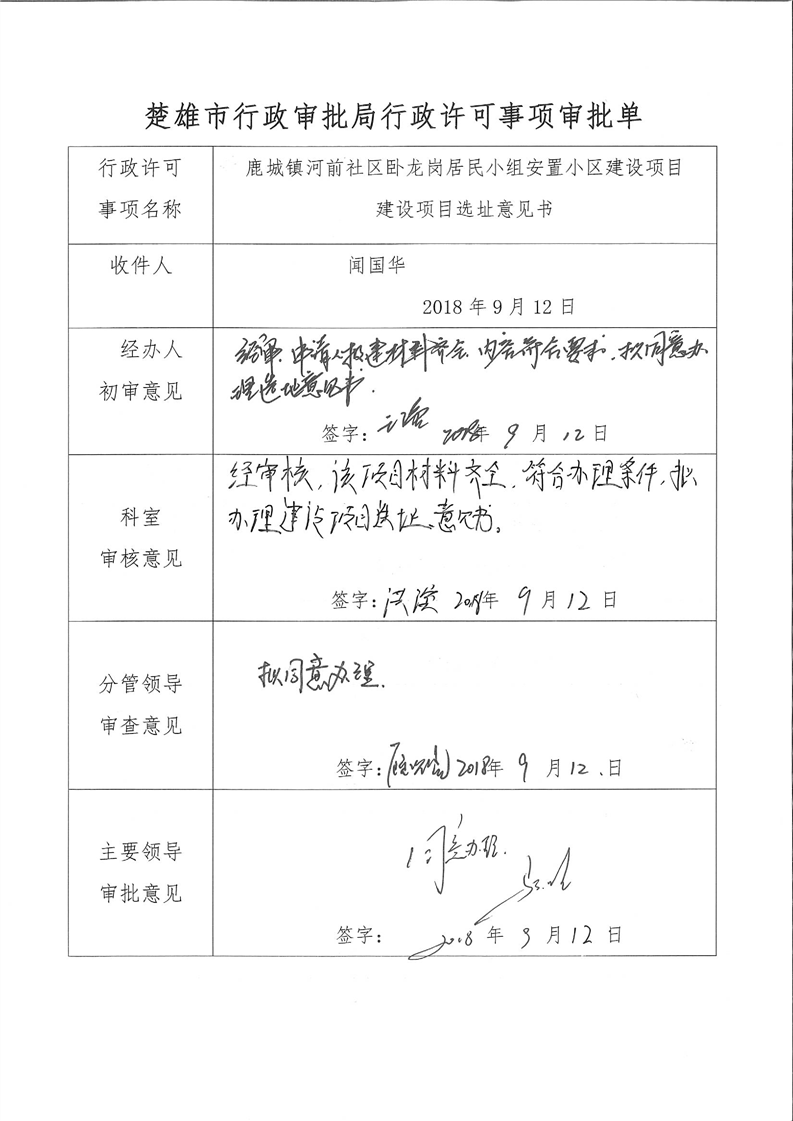 楚雄市行政审批局行政许可事项审批单
行政许可
事项名称
鹿城镇河前社区卧龙岗居民小组安置小区建设项目
建设项目选址意见书
收件人
闻国华
2018年9月12日
经办人
初审意见
经审,申请人报建材料齐全、内容符合要求,拟同意办
理选址意见书.
签字: 2018年 9 月 12 日
科室
审核意见
经审核,该项目材料齐全,符合办理条件,拟
办理建设项目选址意见书。
签字: 2018年 9 月 12 日
分管领导
审查意见
拟同意办理.
签字: 2018年 9 月 12 日
主要领导
审批意见
同意办理.
签字: 2018 年 9 月 12 日